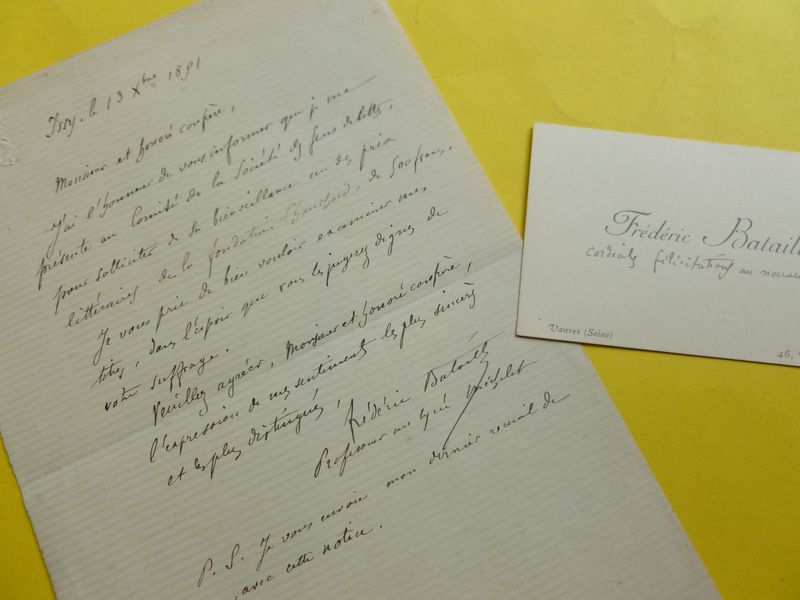 Issy, le 13 Xbre 1891
Monsieur et honoré confrère,
J'ai l'honneur de vous informer que je me
présente au Comité de la Société des Gens de lettres,
pour solliciter de sa bienveillance un des prix
littéraires de la fondation Chauchard, de 500 francs.
Je vous prie de bien vouloir examiner mes
titres, dans l'espoir que vous les jugerez dignes de
votre suffrage.
Veuillez agréer, Monsieur et honoré confrère,
l'expression de mes sentiments les plus sincères
et les plus distingués,
Frédéric Bataille
Professeur au lycée Michelet
P. S. Je vous envoie mon dernier recueil de
avec cette notice.
Frédéric Batail
cordiales félicitations au nouveau
Vanves (Seine)
46,